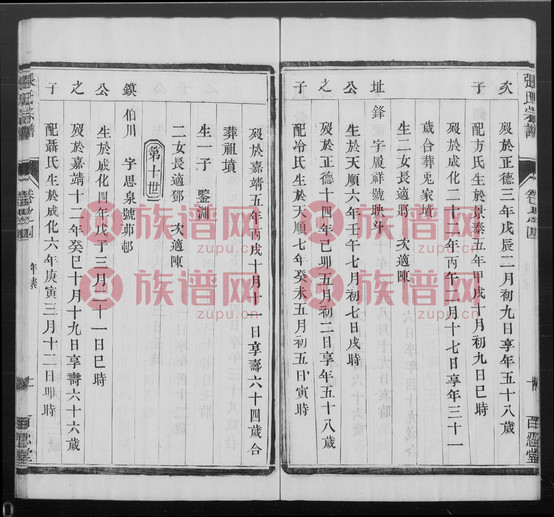 張氏宗譜
百忍堂
次　歿於正德三年戊辰二月初九日享年五十八歲
子　配方氏生於景泰五年甲戌十月初九日巳時
歿於成化二十二年丙午二月十七日享年三十一
歲合葬兎家墳
生二女長適蔣　次適陳
址　鋒　字履祥號耿斗
公　生於天順六年壬午七月初七日戌時
之　歿於正德十四年己卯五月初二日享年五十八歲
子　配冷氏生於天順七年癸未五月初五日寅時
歿於嘉靖五年丙戌十月十一日享壽六十四歲合
葬祖墳
生一子　鑒淵
二女長適鄧　次適陳
第十世
鏌　伯川　字思泉號茆邨
公　生於成化四年戊子三月二十一日巳時
之　歿於嘉靖十二年癸巳十月十九日享壽六十六歲
子　配聶氏生於成化六年庚寅三月十二日卯時
張氏宗譜
年表
百忍堂
族谱网
zupu.cn
族谱网
zupu.cn
族谱网
zupu.cn
族谱网
zupu.cn